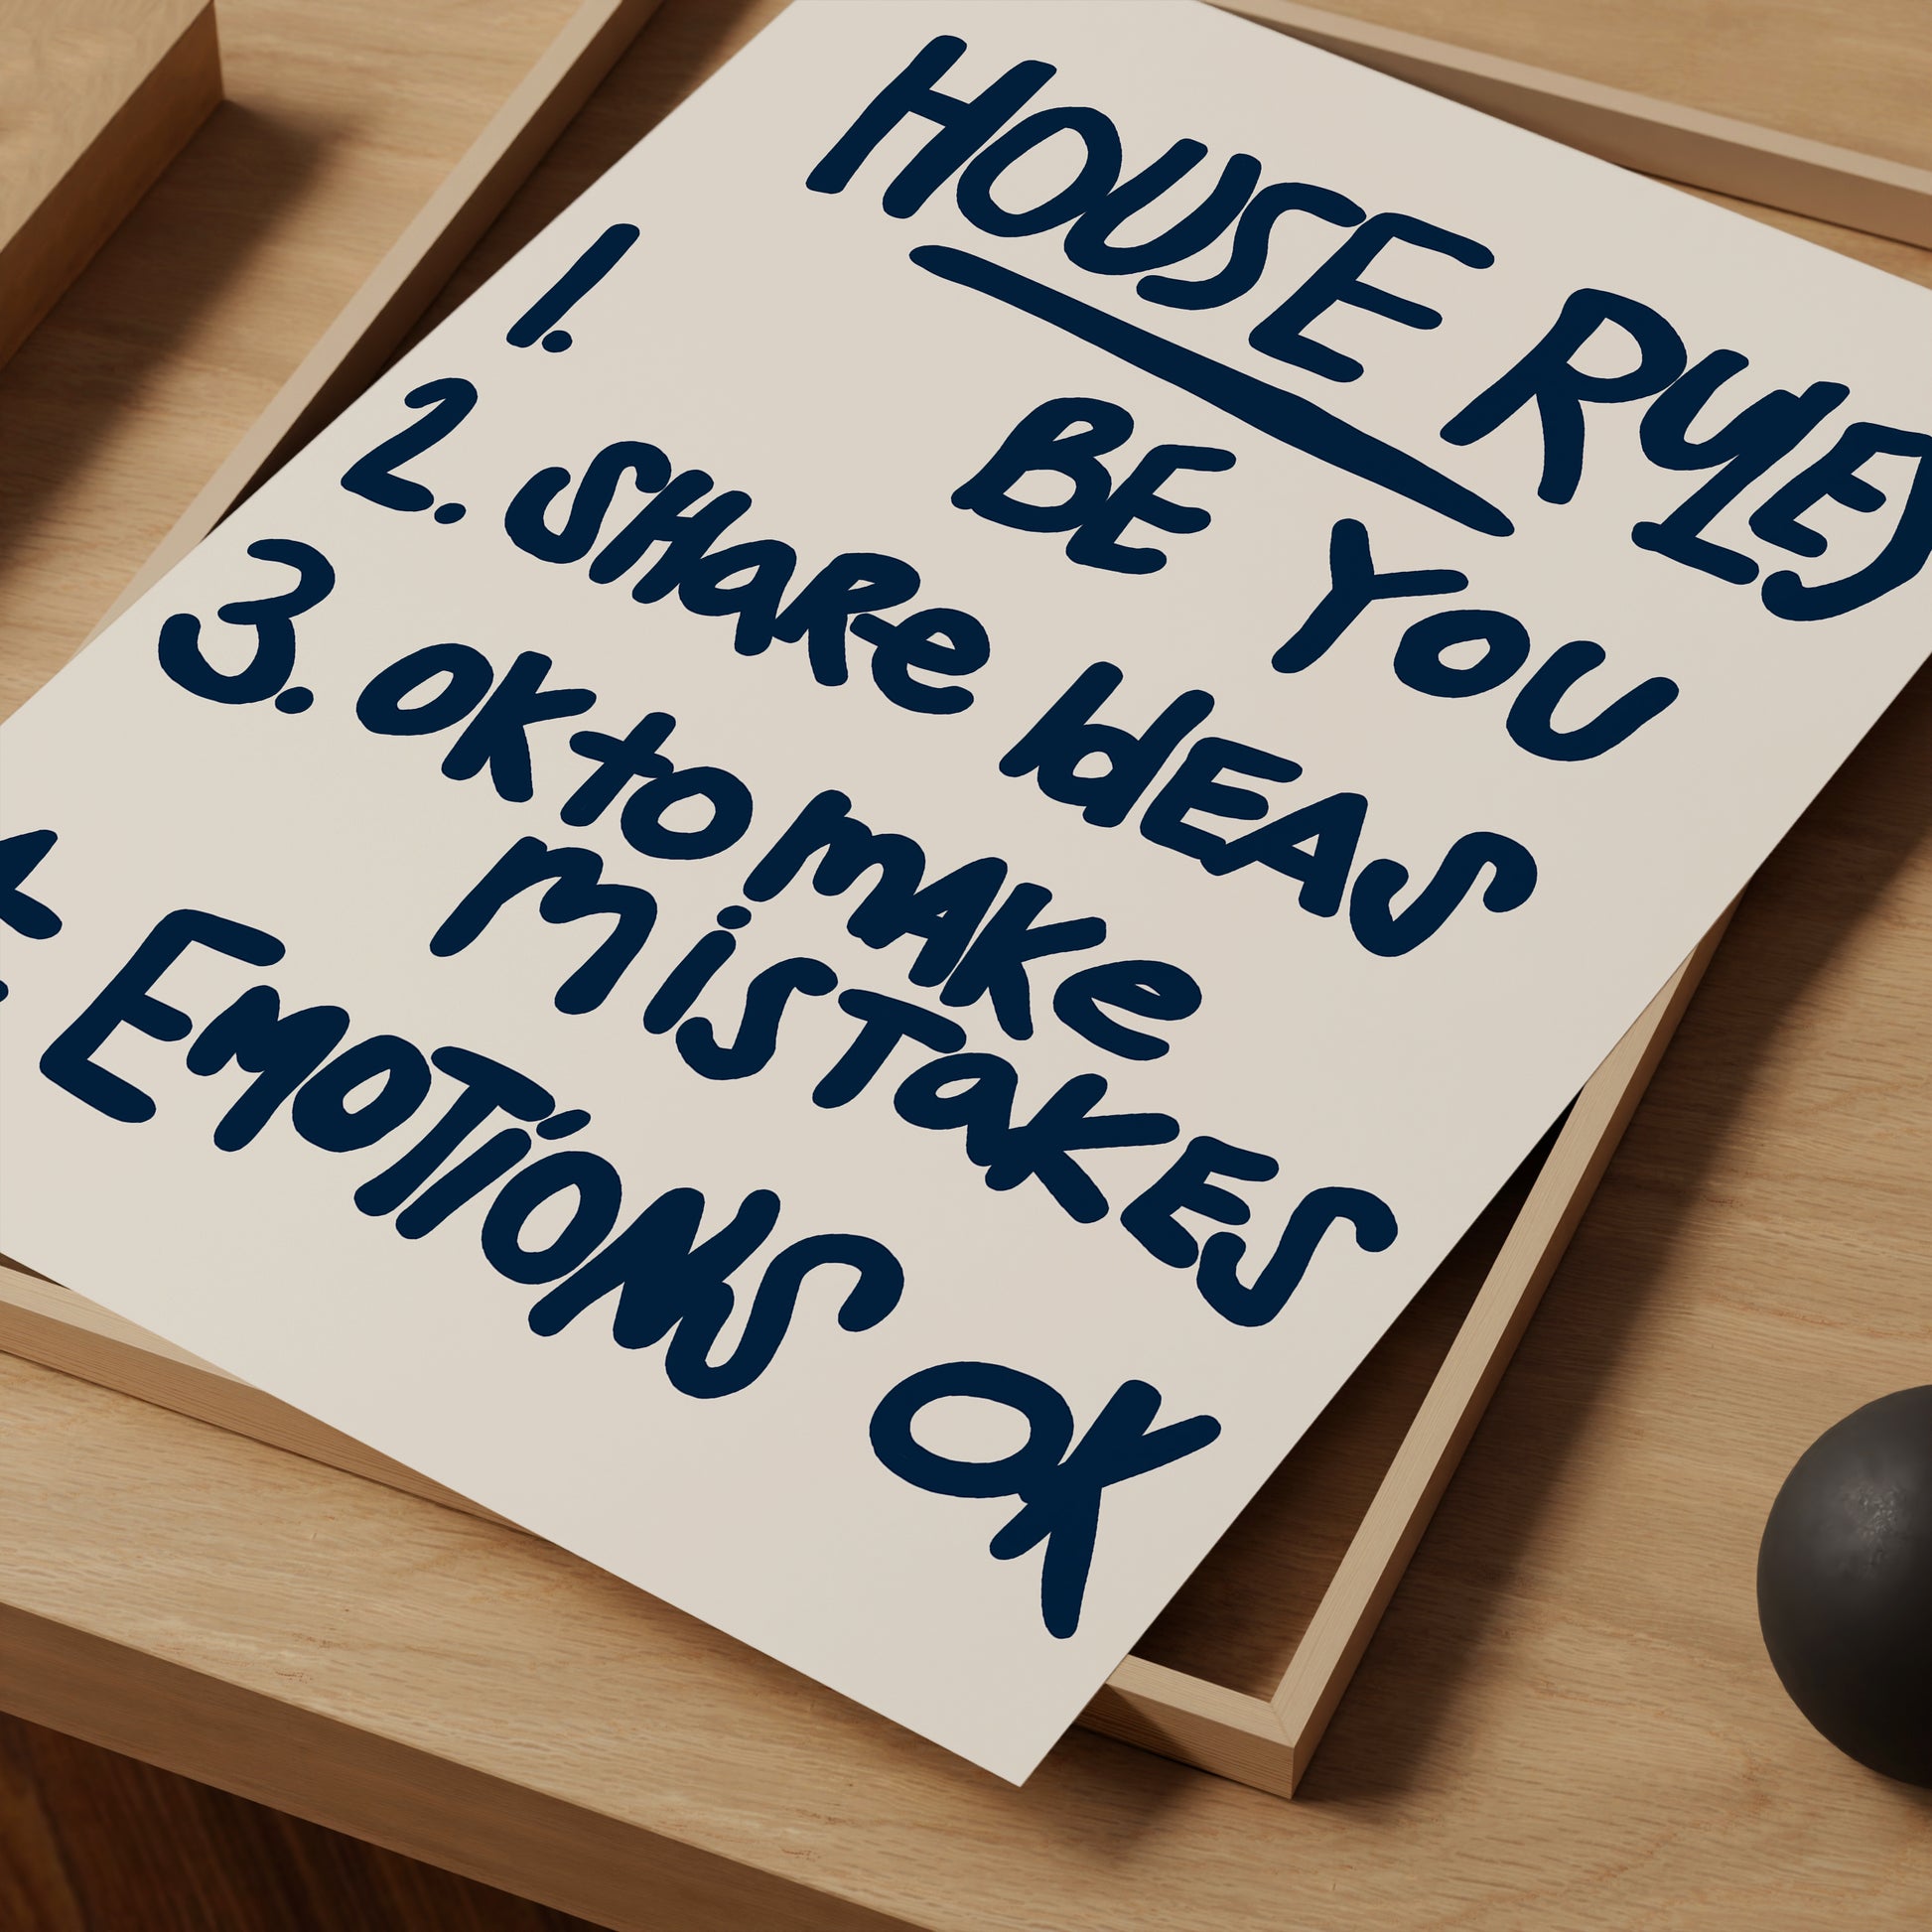 HOUSE RULES
1. BE YOU
2. SHaRe IdEAS
3. OK to mAKe
miSTaKES
4. EmOTiONS OK